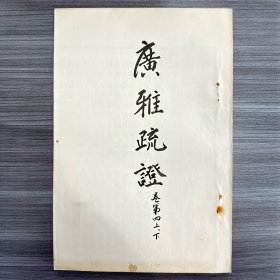 廣雅疏證
卷第四上、下